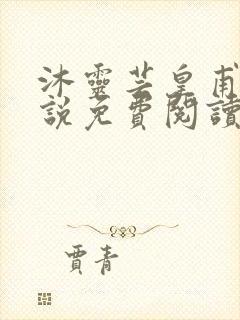 沐靈芸皇甫
說免費閱讀
賈青